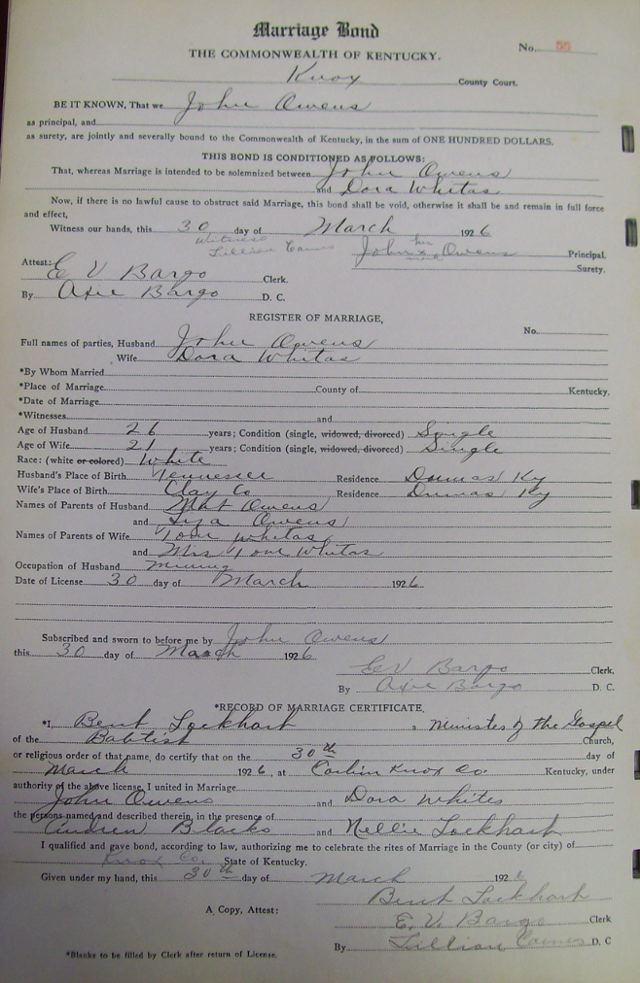 Marriage Bond
No. 55
THE COMMONWEALTH OF KENTUCKY.
Knox County Court.
BE IT KNOWN, That we John Owens
as principal, and
as surety, are jointly and severally bound to the Commonwealth of Kentucky, in the sum of ONE HUNDRED DOLLARS.
THIS BOND IS CONDITIONED AS FOLLOWS:
That, whereas Marriage is intended to be solemnized between John Owens
and Dora Whitas
Now, if there is no lawful cause to obstruct said Marriage, this bond shall be void, otherwise it shall be and remain in full force
and effect,
Witness our hands, this 30 day of March 1926
Witness
Lillian John his x mark Owens Principal.
Surety.
Attest: E V Bargo Clerk.
By Axie Bargo D. C.
REGISTER OF MARRIAGE,
No.
Full names of parties, Husband John Owens
Wife Dora Whitas
*By Whom Married
*Place of Marriage County of Kentucky.
*Date of Marriage
*Witnesses and
Age of Husband 26 years; Condition (single, widowed, divorced) Single
Age of Wife 21 years; Condition (single, widowed, divorced) Single
Race: (white or colored) White
Husband's Place of Birth Tennessee Residence Ky
Wife's Place of Birth Clay Co Residence Ky
Names of Parents of Husband Owens
and Owens
Names of Parents of Wife Tom Whitas
and Mrs Tom Whitas
Occupation of Husband Mining
Date of License 30 day of March 1926
Subscribed and sworn to before me by John Owens
this 30 day of March 1926
E V Bargo Clerk,
By Axie Bargo D. C.
*RECORD OF MARRIAGE CERTIFICATE,
*I, Bent Lockhart, a Minister of the Gospel
of the Babtist Church,
or religious order of that name, do certify that on the 30th day of
March 1926, at Corbin Knox Co. Kentucky, under
authority of the above license, I united in Marriage
John Owens and Dora Whites
the persons named and described therein, in the presence of
Blacks and Nellie Lockhart
I qualified and gave bond, according to law, authorizing me to celebrate the rites of Marriage in the County (or city) of
Knox Co. State of Kentucky.
Given under my hand, this 30th day of March 1926
Bent Lockhart
A Copy, Attest: E. V. Bargo Clerk
By Lillian D. C
*Blanks to be filled by Clerk after return of License.